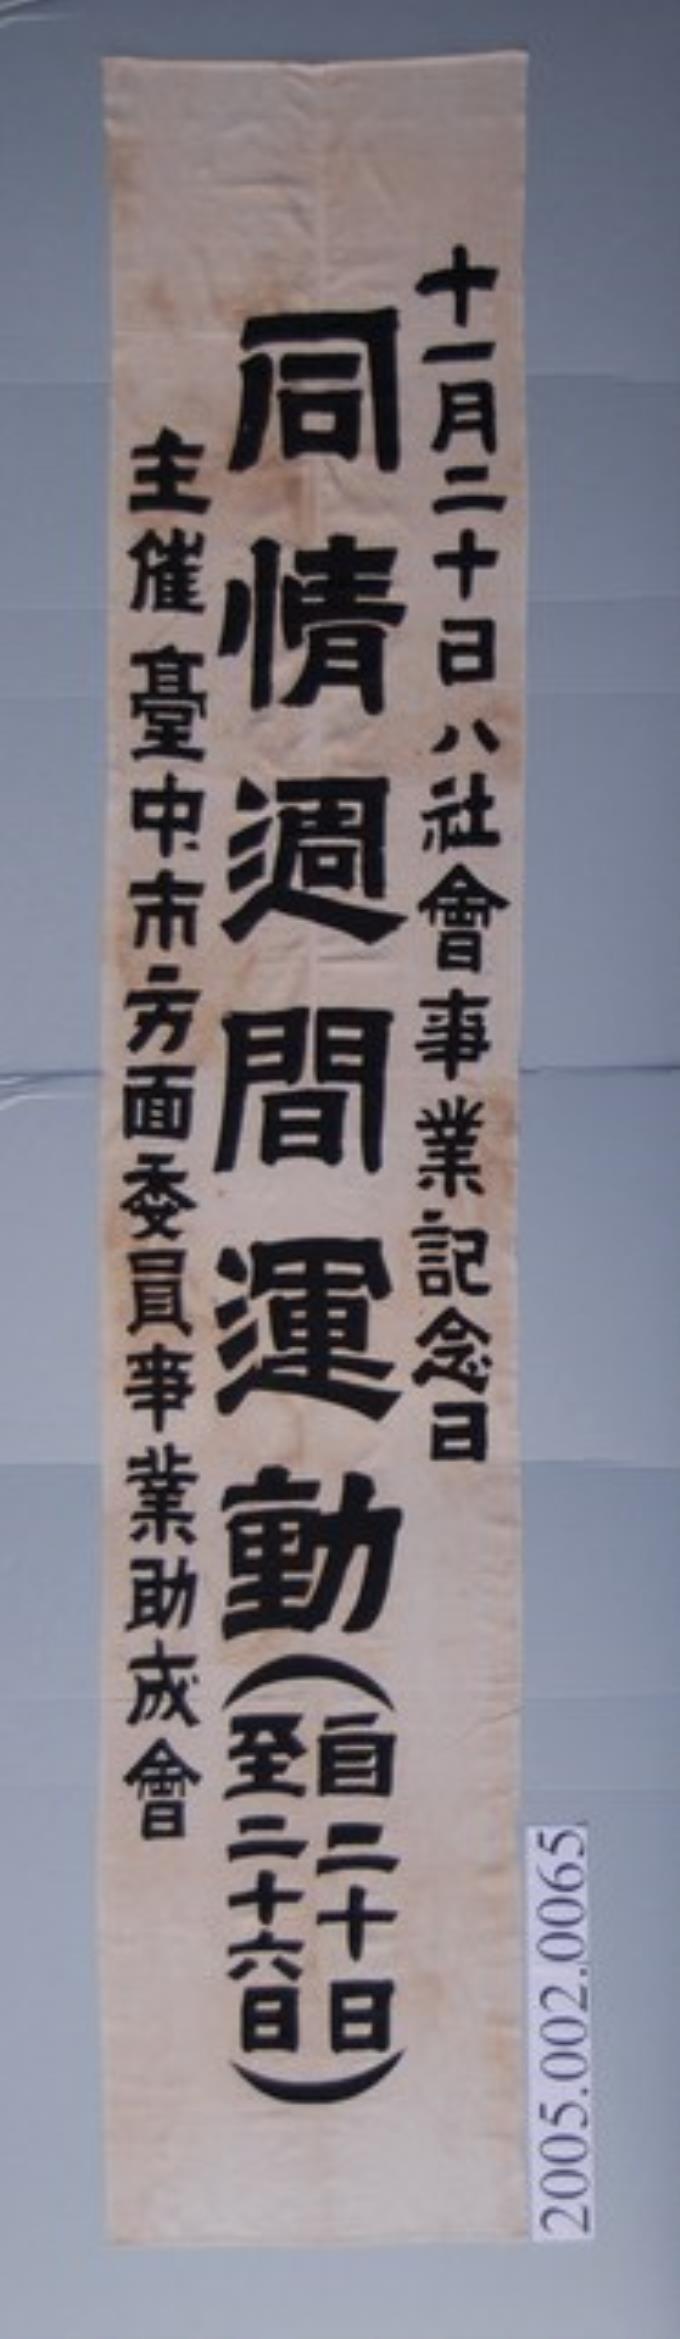 十一月二十日ハ社會事業記念日
同情週間運動(自二十日至二十六日)
主催 臺中市方面委員事業助成會
2005.002.0065